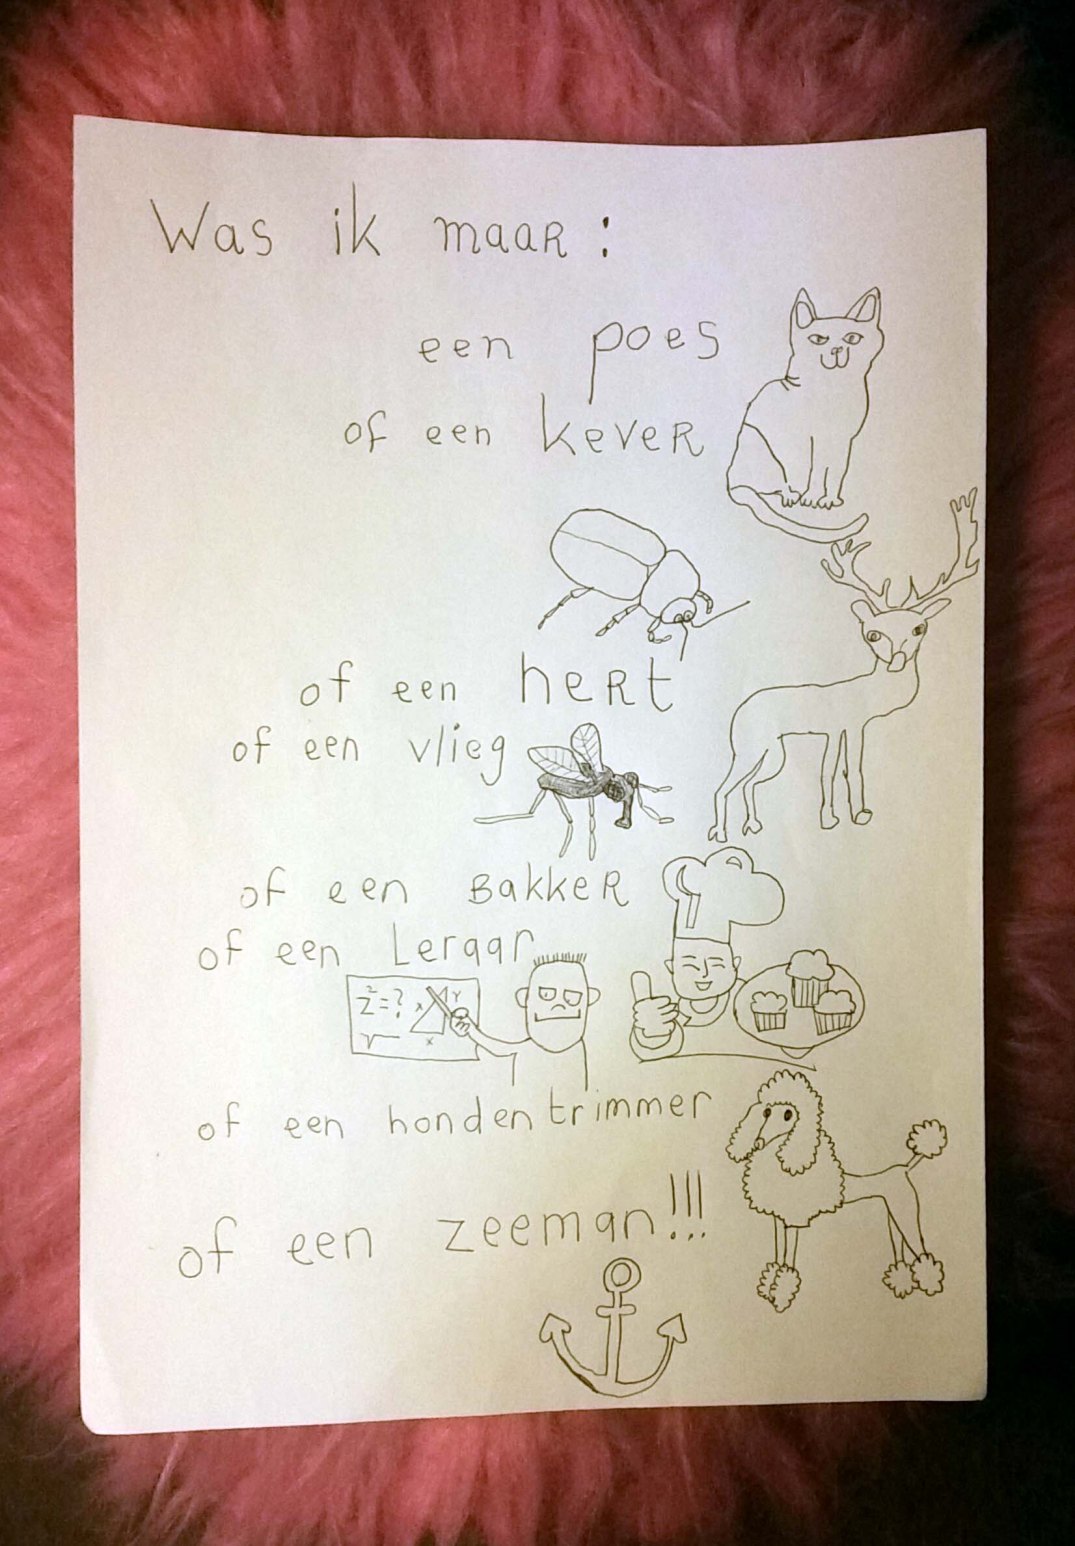 Was ik maar:
een poes
of een kever
of een hert
of een vlieg
of een Bakker
of een Leraar
z²=? x y
√ x
of een hondentrimmer
of een zeeman!!!